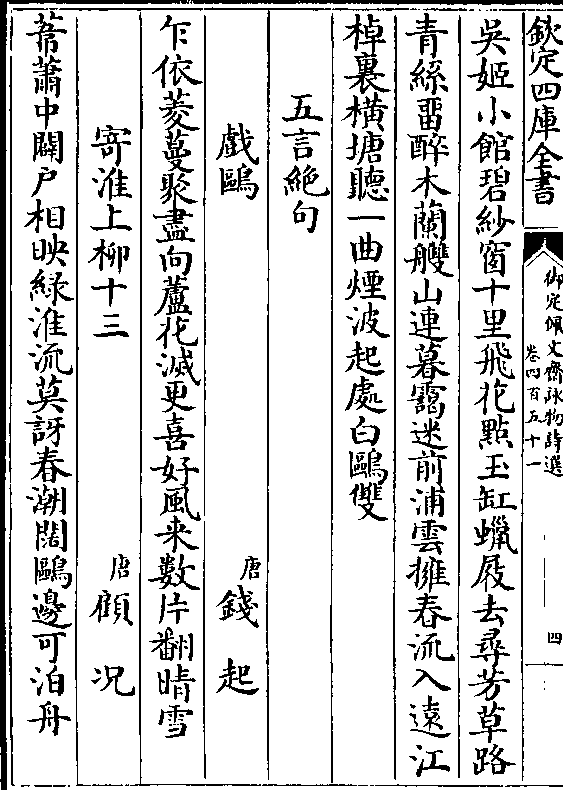 欽定四庫全書
御定佩文齋詠物詩選
卷四百五十一
四
吳姬小館碧紗窗十里飛花點玉缸蠟屐去尋芳草路
青絲畱醉木蘭艭山連暮靄迷前浦雲擁春流入遠江
棹裏橫塘聽一曲煙波起處白鷗雙
五言絶句
戲鷗 唐 錢起
乍依菱蔓聚盡向蘆花滅更喜好風来數片翻晴雪
寄淮上柳十三 唐 顧况
葦蕭中闢户相映緑淮流莫訝春潮闊鷗邊可泊舟